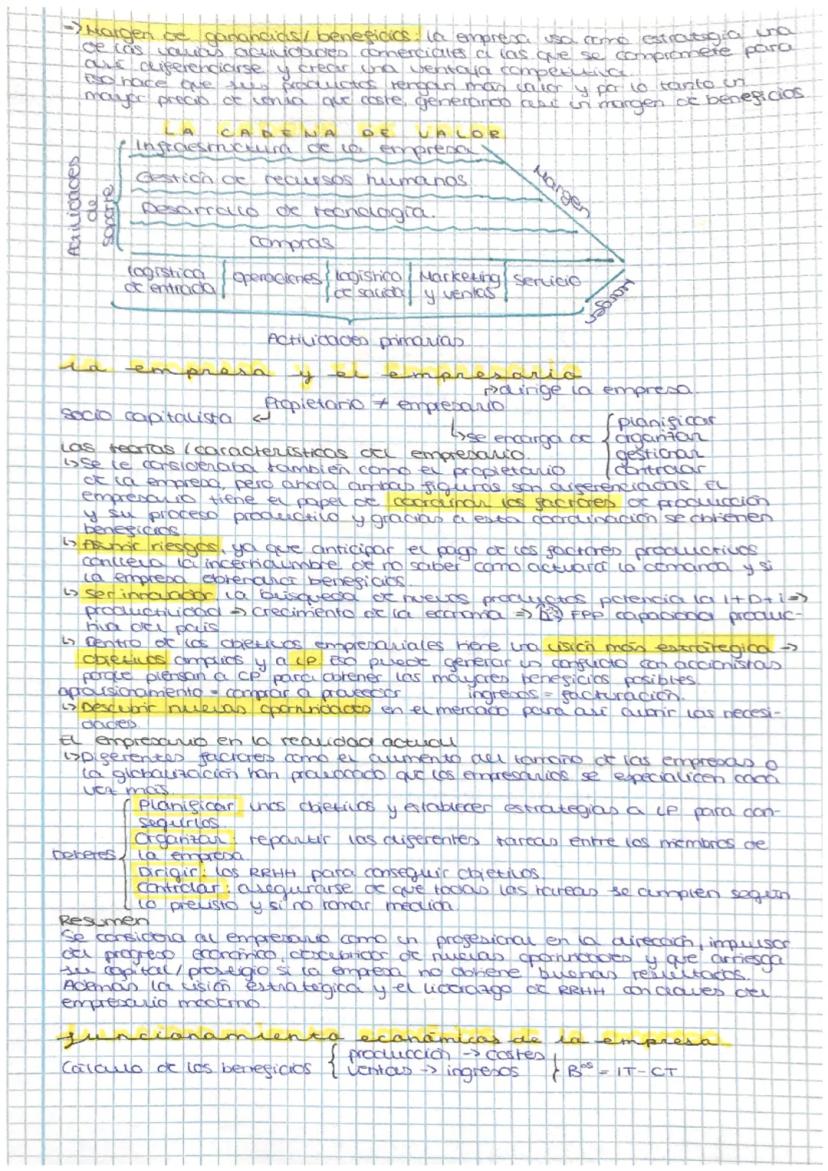 → Margen de ganancias/beneficios: la empresa usa como estrategia una
de las varias actividades comerciales a las que se compromete para
así diferenciarse y crear una ventaja competitiva.
Eso hace que sus productos tengan más valor y por lo tanto un
mayor precio de venta que coste, generando así un margen de beneficios
LA CADENA DE VALOR
Infraestructura de la empresa
Gestión de recursos humanos
Desarrollo de tecnología.
Compras
Actividades de soporte
Margen
logística de entrada
operaciones
logística de salida
Marketing y ventas
Servicio
Margen
Actividades primarias
La empresa y el empresario
→dirige la empresa
Propietario ≠ empresario
Socio capitalista ↲
↳se encarga de { planificar
organizar
gestionar
controlar
Las teorías/características del empresario
↳Se le consideraba también como el propietario
de la empresa, pero ahora ambas figuras son diferenciadas. El
empresario tiene el papel de coordinar los factores de producción
y su proceso productivo y gracias a esta coordinación se obtienen
beneficios
↳ Asumir riesgos, ya que anticipar el pago de los factores productivos
conlleva la incertidumbre de no saber como actuará la demanda y si
la empresa obtendrá beneficios.
↳ Ser innovador la búsqueda de nuevos productos potencia la I+D+i ⇒
productividad ⇒ crecimiento de la economía ⇒ FPP capacidad produc-
tiva del país
↳ Dentro de los objetivos empresariales tiene una visión más estratégica →
objetivos amplios y a LP Eso puede generar un conflicto con accionistas
porque piensan a CP para obtener los mayores beneficios posibles.
aprovisionamiento = comprar a proveedor ingresos = facturación.
↳ Descubrir nuevas oportunidades en el mercado para así cubrir las necesi-
dades
El empresario en la realidad actual
↳Diferentes factores como el aumento del tamaño de las empresas o
la globalización han provocado que los empresarios se especialicen cada
vez más.
Deberes { Planificar unos objetivos y establecer estrategias a LP para con-
seguirlos
Organizar: repartir las diferentes tareas entre los miembros de
la empresa
Dirigir: los RRHH para conseguir objetivos.
Controlar: asegurarse de que todas las tareas se cumplen según
lo previsto y si no tomar medida.
Resumen
Se considera al empresario como un profesional en la dirección, impulsor
del progreso económico, descubridor de nuevas oportunidades y que arriesga
su capital/prestigio si la empresa no obtiene buenos resultados.
Además la visión estratégica y el liderazgo de RRHH son claves del
empresario moderno.
Funcionamiento económicos de la empresa
Cálculo de los beneficios { producción → costes
ventas → ingresos } Bºˢ = IT - CT